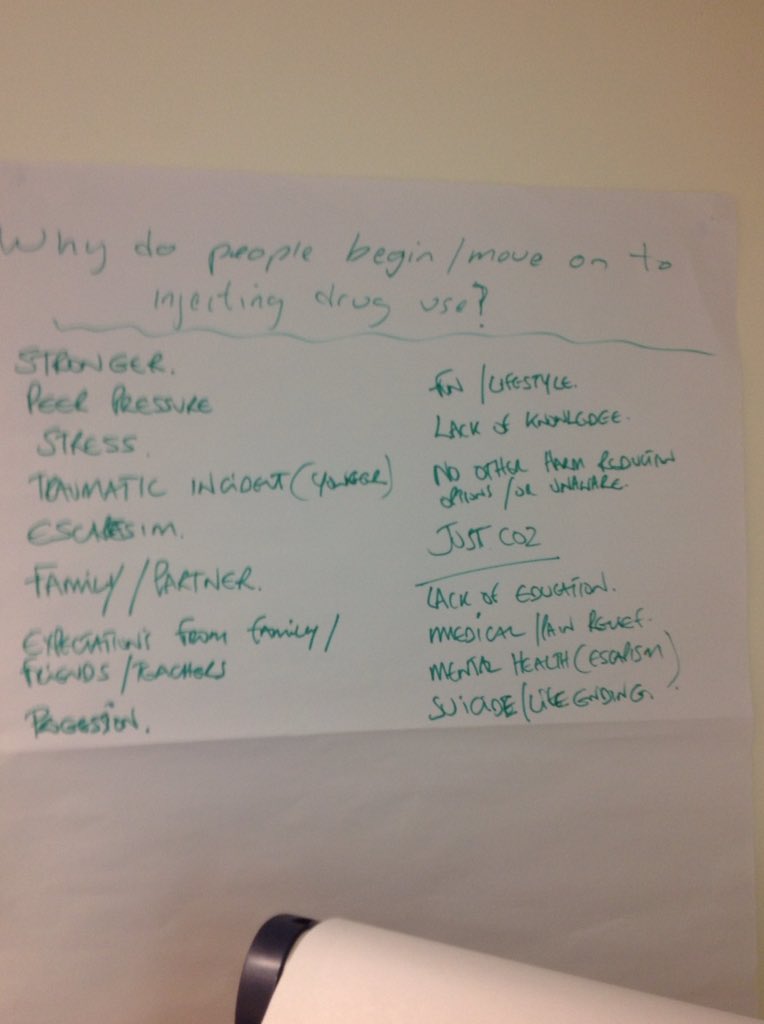 Why do people begin/move on to
injecting drug use?
STRONGER.
PEER PRESSURE
STRESS.
TRAUMATIC INCIDENT (YOUNGER)
ESCAPSSIM.
FAMILY/PARTNER.
EXPECTATIONS from family/
FRIENDS/TEACHERS
PROGESSION.
FUN/LIFESTYLE.
LACK of KNOWLEDGE.
NO OTHER HARM REDUCTION
OPTIONS/OR UNAWARE.
JUST COZ
LACK OF EDUCATION.
MEDICAL/PAIN RELIEF.
MENTAL HEALTH (ESCAPISM)
SUICIDE/LIFE ENDING.